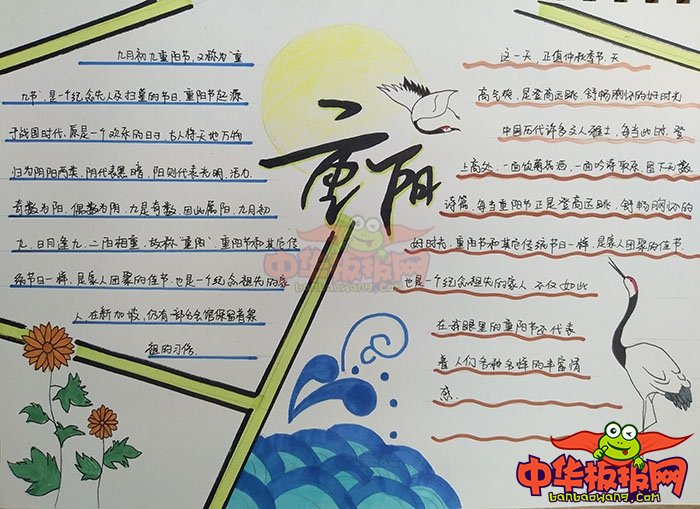 九月初九重阳节，又称为"重
九节"，是一个纪念先人及扫墓的节日，重阳节起源
于战国时代，原是一个欢乐的日日，古人将天地万物
归为阴阳两类，阴代表黑暗，阳则代表光明、活力
奇数为阳，偶数为阴，九是奇数，因此属阳，九月初
九，日月逢九，二阳相重，故称"重阳"，重阳节和其它传
统节日一样，是家人团聚的佳节，也是一个纪念祖先的家
人 在新加坡，仍有一部分会馆保留着祭
祖的习俗
重阳
这一天，正值仲秋季节，天
高气爽，是登高远眺，舒畅胸怀的好时光
中国历代许多文人雅士，每当此时，登
上高处，一面饮菊花酒，一面吟诗取乐，留下无数
诗篇，每当重阳节正是登高远眺，舒畅胸怀的
好时光，重阳节和其它传统节日一样，是家人团聚的佳节
也是一个纪念祖先的家人 不仅如此
在我眼里的重阳节还代表
着人们各种各样的丰富情
感.
中华板报网
banbaowang.com
中华板报网
banbaowang.com